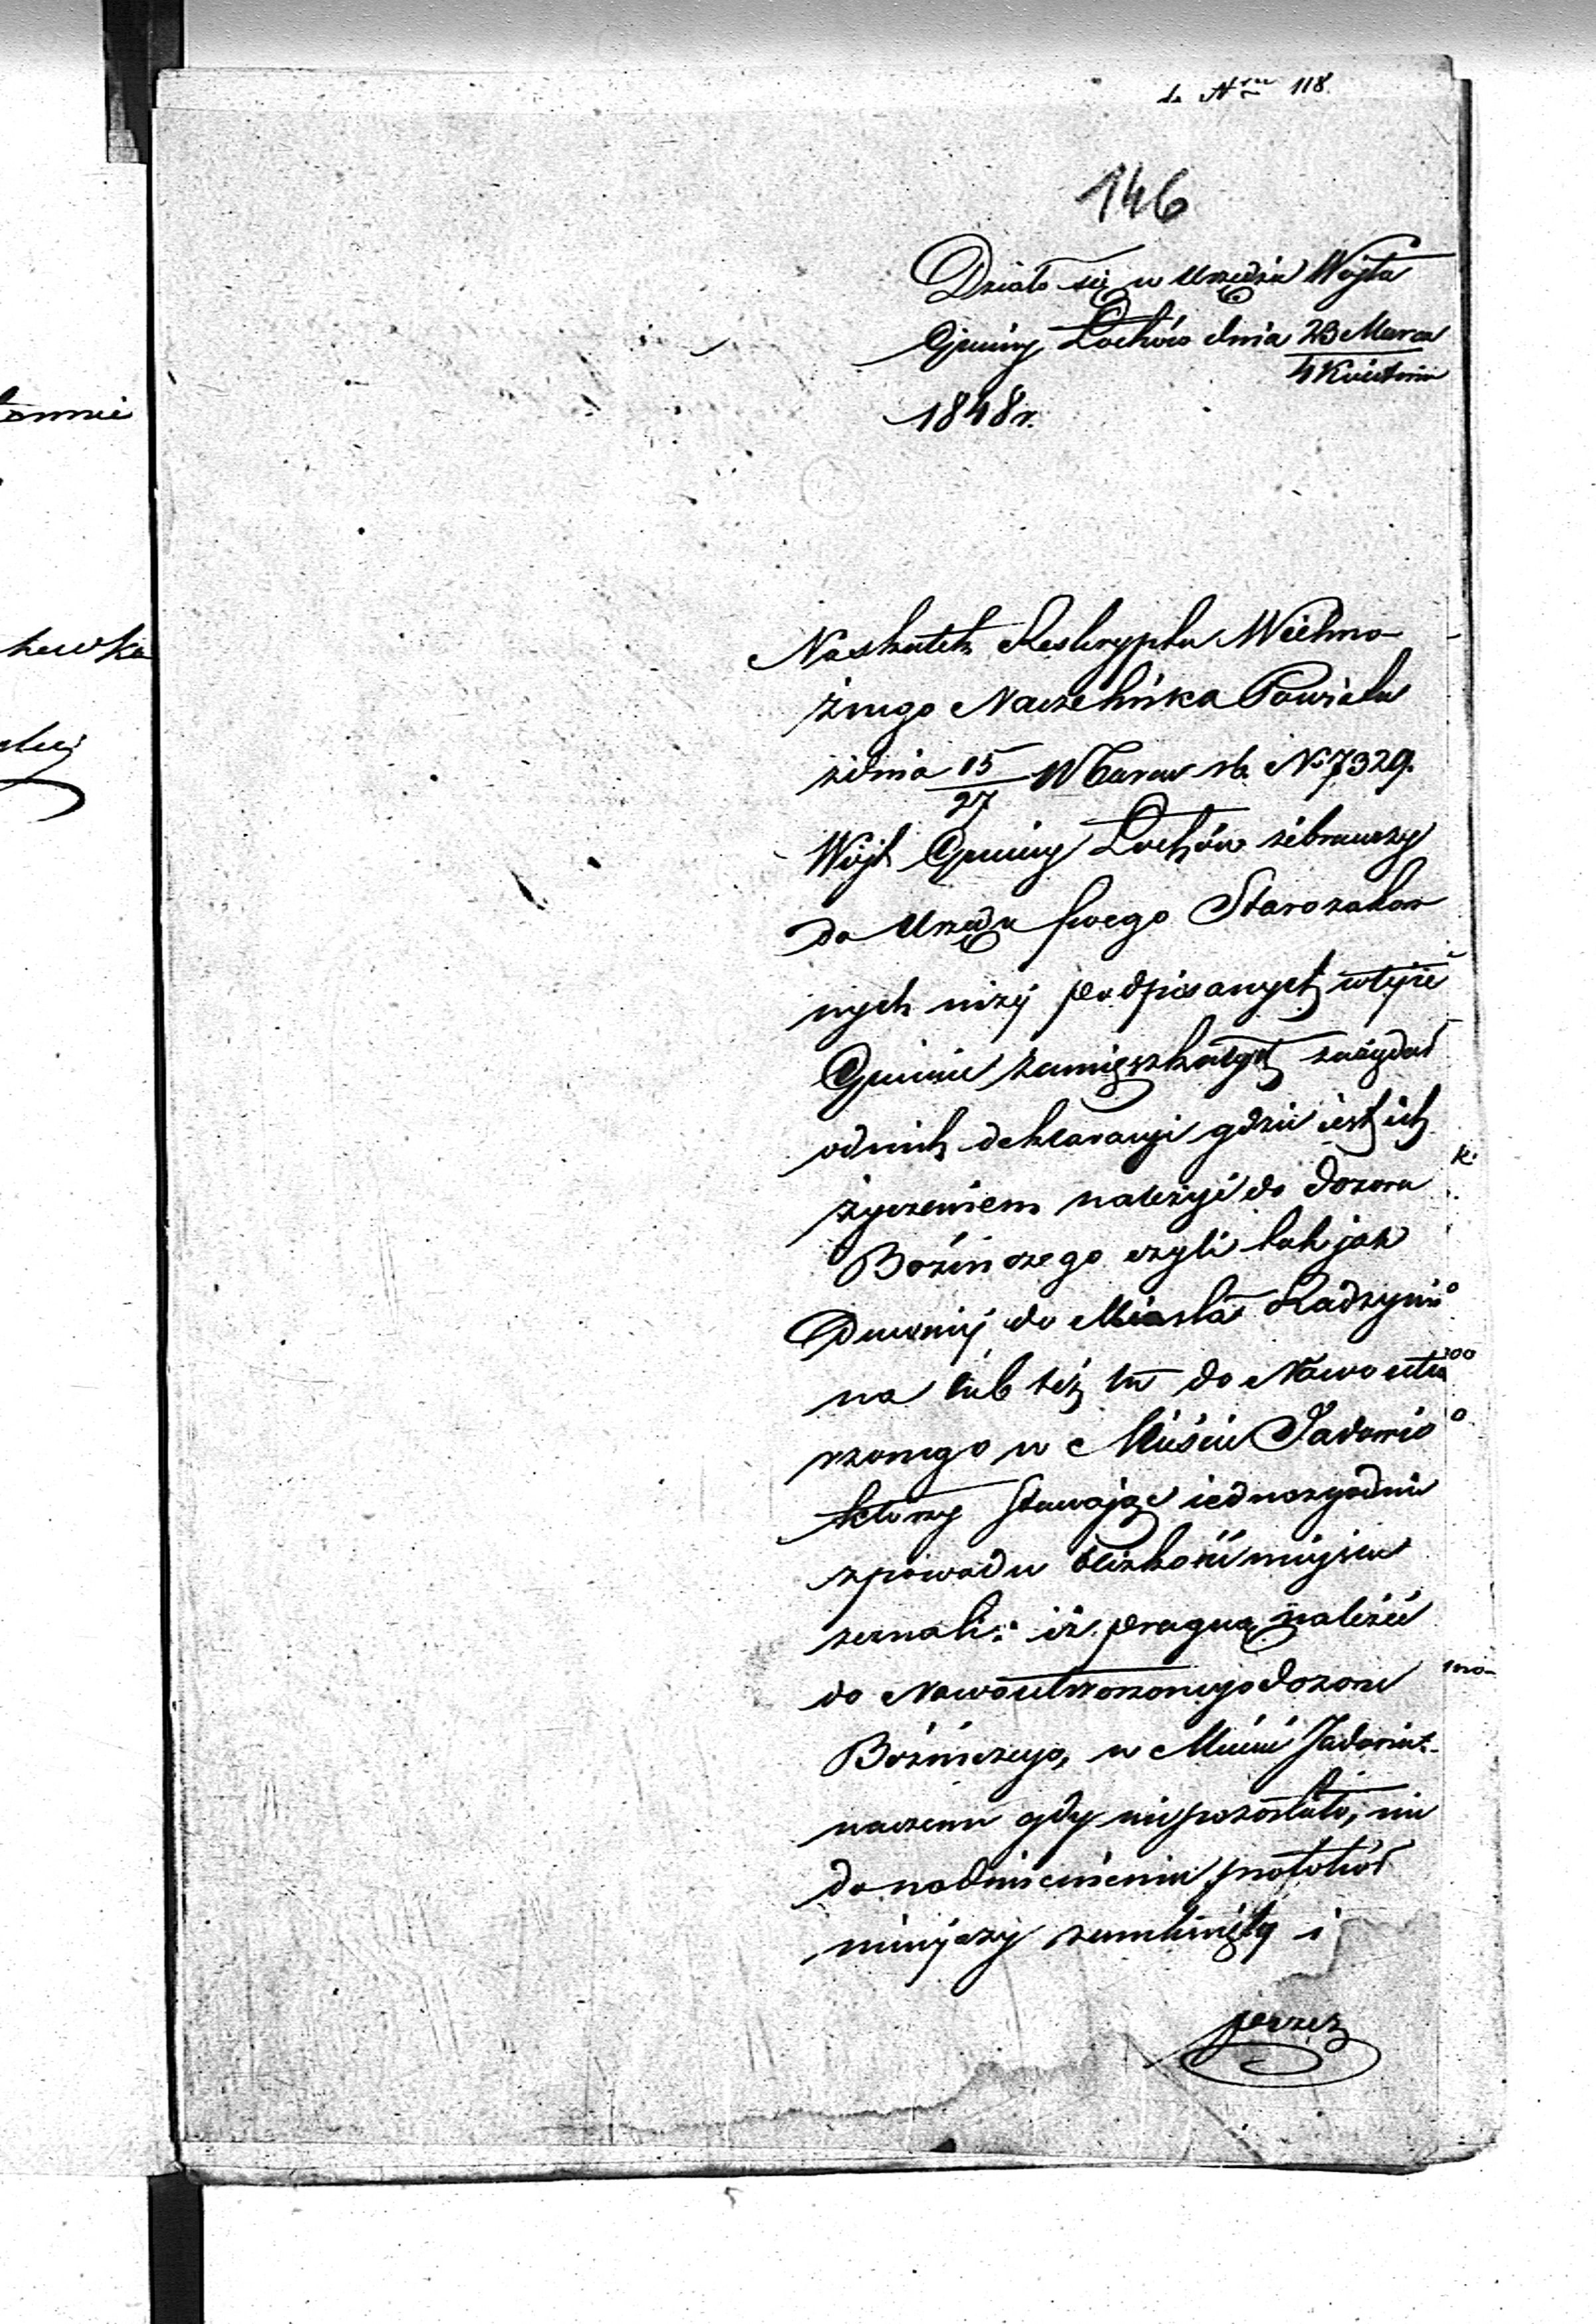 do Nru 118.
146
Działo się w Urzędzie Wójta
Gminy Łochów dnia 23 Marca
4 Kwietnia
1848 r.
Naskutek Reskryptu Wielmo-
żnego Naczelnika Powiatu
zdnia 15/27 Marca rb. No 7329.
Wójt Gminy Łochów zebrawszy
do Urzędu swego Starozakon
nych niżej podpisanych wtejże
Gminie zamieszkałych zażądał
odnich deklaracyi gdzie iest ich
życzeniem należyć do Dozoru
Bożniczego czyli tak jak
Dawniej do Miasta Radzymi
na lub też tu do Nawo utwo
rzonego w Mieście Jadowie
którzy stawając iednozgodnie
zpowodu blizkości miejsca
zeznali: iż pragną należeć
do Nawoutworzonego Dozoru
Bożniczego, w Mieście Jadowie.
naczem gdy niepozostało, nic
do nadmienienia protokół
niniejszy zamknięty i
przez